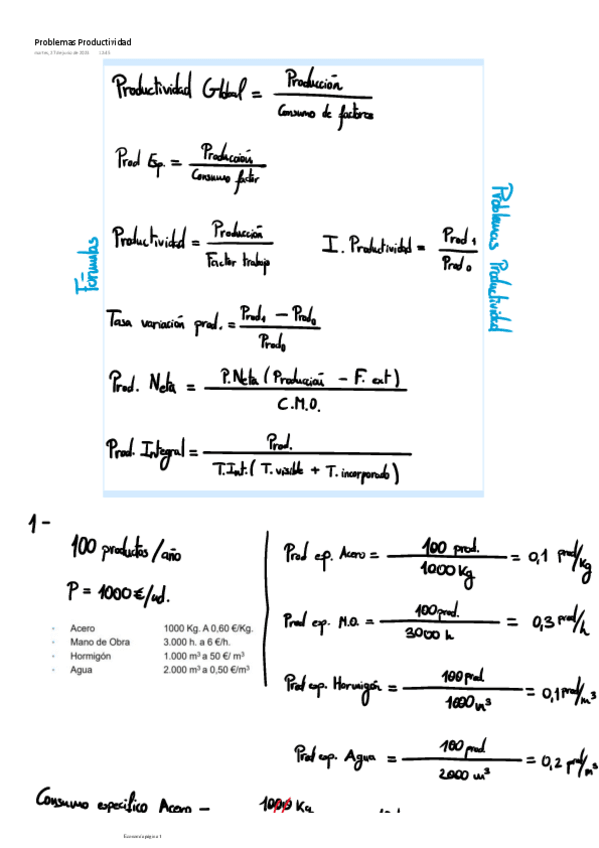 Problemas Productividad
martes, 27 de junio de 2023 13:45
Productividad Global = Producción / Consumo de factores
Prod Esp. = Producción / Consumo factor
Productividad = Producción / Factor trabajo
I. Productividad = Prod₁ / Prod₀
Tasa variación prod. = Prod₁ - Prod₀ / Prod₀
Prod. Neta = P.Neta (Producción - F. ext) / C.M.O.
Prod. Integral = Prod. / T.Int. (T. visible + T. incorporado)
Fórmulas
Problemas Productividad
1-
100 productos/año
P = 1000 €/ud.
Acero 1000 Kg. A 0,60 €/Kg.
Mano de Obra 3.000 h. a 6 €/h.
Hormigón 1.000 m³ a 50 €/ m³
Agua 2.000 m³ a 0,50 €/m³
Prod ep. Acero = 100 prod. / 1000 Kg = 0,1 prod/kg
Prod ep. M.O. = 100 prod. / 3000 h = 0,3 prod/h
Prod esp. Hormigón = 100 prod / 1000 m³ = 0,1 prod/m³
Prod esp. Agua = 100 prod / 2000 m³ = 0,2 pr/m³
Consumo específico Acero - 1000 Kg
Economía página 1